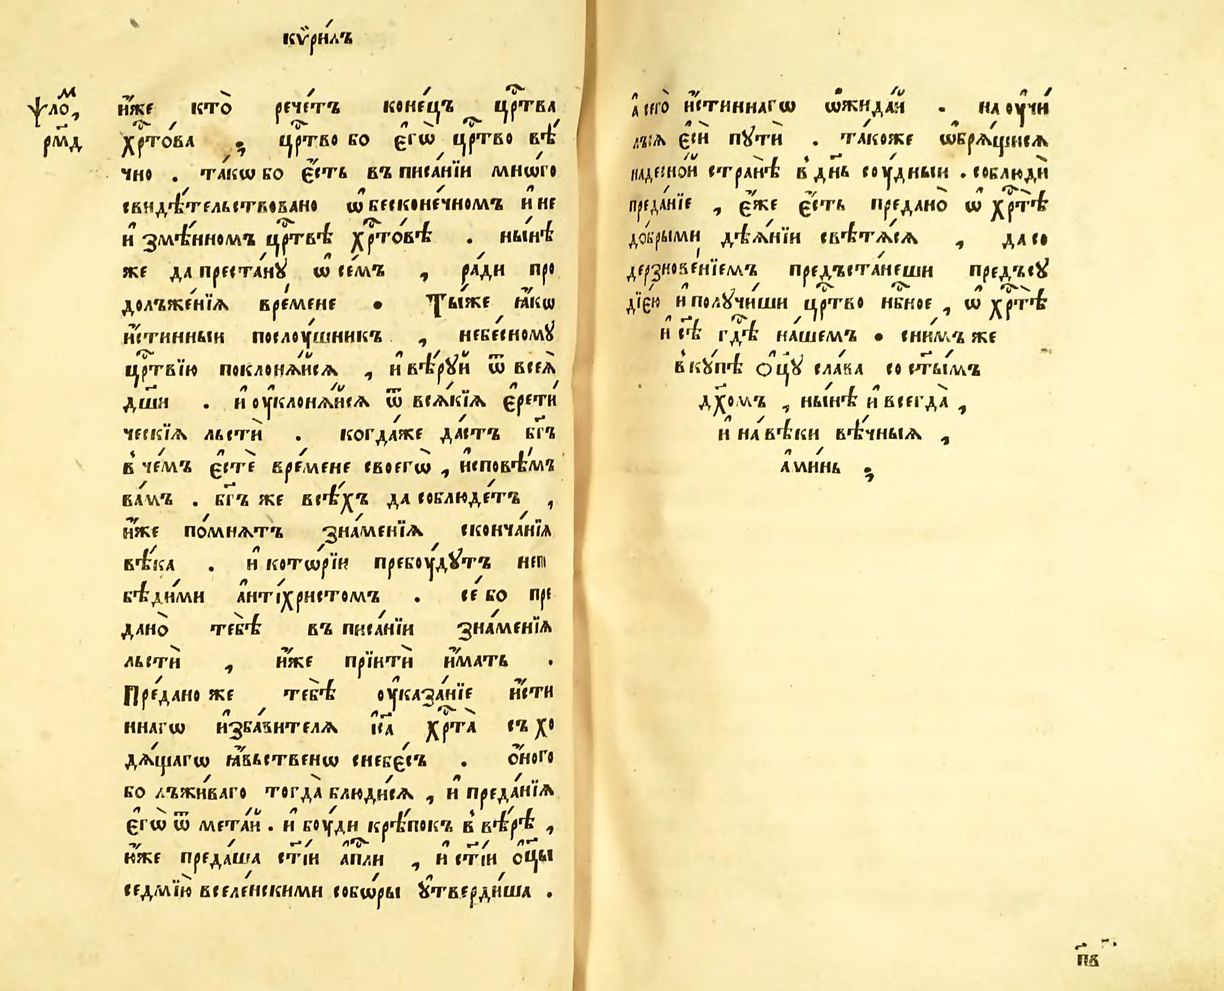 кѷри́лъ
ѱало́м,
рм҃д
и҆́же кто̀ рече́тъ коне́цъ црⷭ҇тва
хрⷭ҇то́ва ; црⷭ҇тво бо є҆гѡ̀ црⷭ҇тво вѣ́
чно . та́кѡ бо є҆́сть въ писа́нїи мно́гѡ
свидѣ́тельствовано ѡ҆ бесконе́чномъ и҆ не
и҆ змѣ́нномъ црⷭ҇твѣ хрⷭ҇то́вѣ . нн҃ѣ
же да преста́нꙋ ѡ҆ се́мъ , ра́ди про
долъже́нїѧ вре́мене . Ты́же ꙗ҆́кѡ
и҆́стинныи послꙋ́шникъ , небе́сномꙋ
црⷭ҇твїю поклонѧ́йсѧ , и҆ вѣ́рꙋй ѿ всеѧ̀
дш҃и . и҆ оу҆клонѧ́йсѧ ѿ всѧ́кїѧ є҆рети́
ческїѧ льстѝ . когда́же да́стъ бг҃ъ
в че́мъ є҆стѐ вре́мене своегѡ̀ , и҆сповѣ́мъ
ва́мъ . бг҃ъ же всѣ́хъ да соблюде́тъ ,
и҆́же по́мнѧтъ зна́менїѧ сконча́нїѧ
вѣ́ка . и҆ кото́рїи пребꙋ́дꙋтъ неп
бѣди́ми а҆нті́христомъ . се́ бо пре
дано̀ тебѣ̀ въ писа́нїи зна́менїѧ
льстѝ , и҆́же прїитѝ и҆́мать .
Пре́дано же тебѣ̀ оу҆каза́нїе и҆́сти
ннагѡ и҆збави́телѧ і҆с҃а хрⷭ҇та̀ съ хо
дѧ́щагѡ ꙗ҆́вьственѡ с небе́съ . о҆́ного
бо лъжи́ваго тогда̀ блюди́сѧ , и҆ преда́нїѧ
є҆гѡ̀ ѿ мета́й . и҆ бꙋ́ди крѣ́покъ в вѣ́рѣ ,
ю҆́же преда́ша ст҃і́и а҆пⷭ҇ли , и҆ ст҃і́и ѻ҆ц҃ы
седмїю̀ вселе́нскими собѡ́ры оу҆тверди́ша .
а҆ сего̀ и҆́стиннагѡ ѡ҆жида́й . на оу҆чи́
лъсѧ є҆сѝ пꙋтѝ . та́коже ѡ҆брѧ́щисѧ
на десно́й странѣ̀ в дн҃ь сꙋ́дныи . соблюдѝ
преда́нїе , є҆́же є҆́сть предано̀ ѡ҆ хрⷭ҇тѣ̀
до́брыми дѣѧ́нїи свѣтѧ́сѧ , да со
дерзнове́нїемъ предъста́неши предъ сꙋ
дїе́ю и҆ полꙋ́чиши црⷭ҇тво нб҃ное , ѡ҆ хрⷭ҇тѣ̀
и҆ с҃ѣ гдⷭ҇ѣ на́шемъ . сни́мъ же
вкꙋ́пѣ ѻ҆ц҃ꙋ сла́ва со ст҃ы́мъ
дх҃омъ , ны́нѣ и҆ всегда̀ ,
и҆ на вѣ́ки вѣ́чныѧ ,
а҆ми́нь ;
п҃в